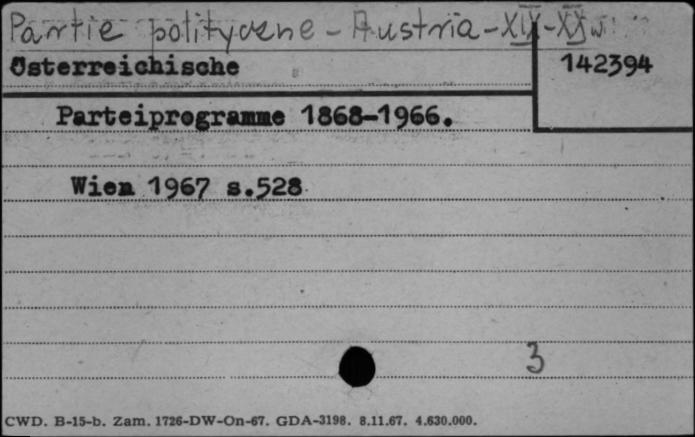 Partie polityczne - Austria - XIX-XX w.
Österreichische
142394
Parteiprogramme 1868-1966.
Wien 1967 s.528
3
CWD. B-15-b. Zam. 1726-DW-On-67. GDA-3198. 8.11.67. 4.630.000.